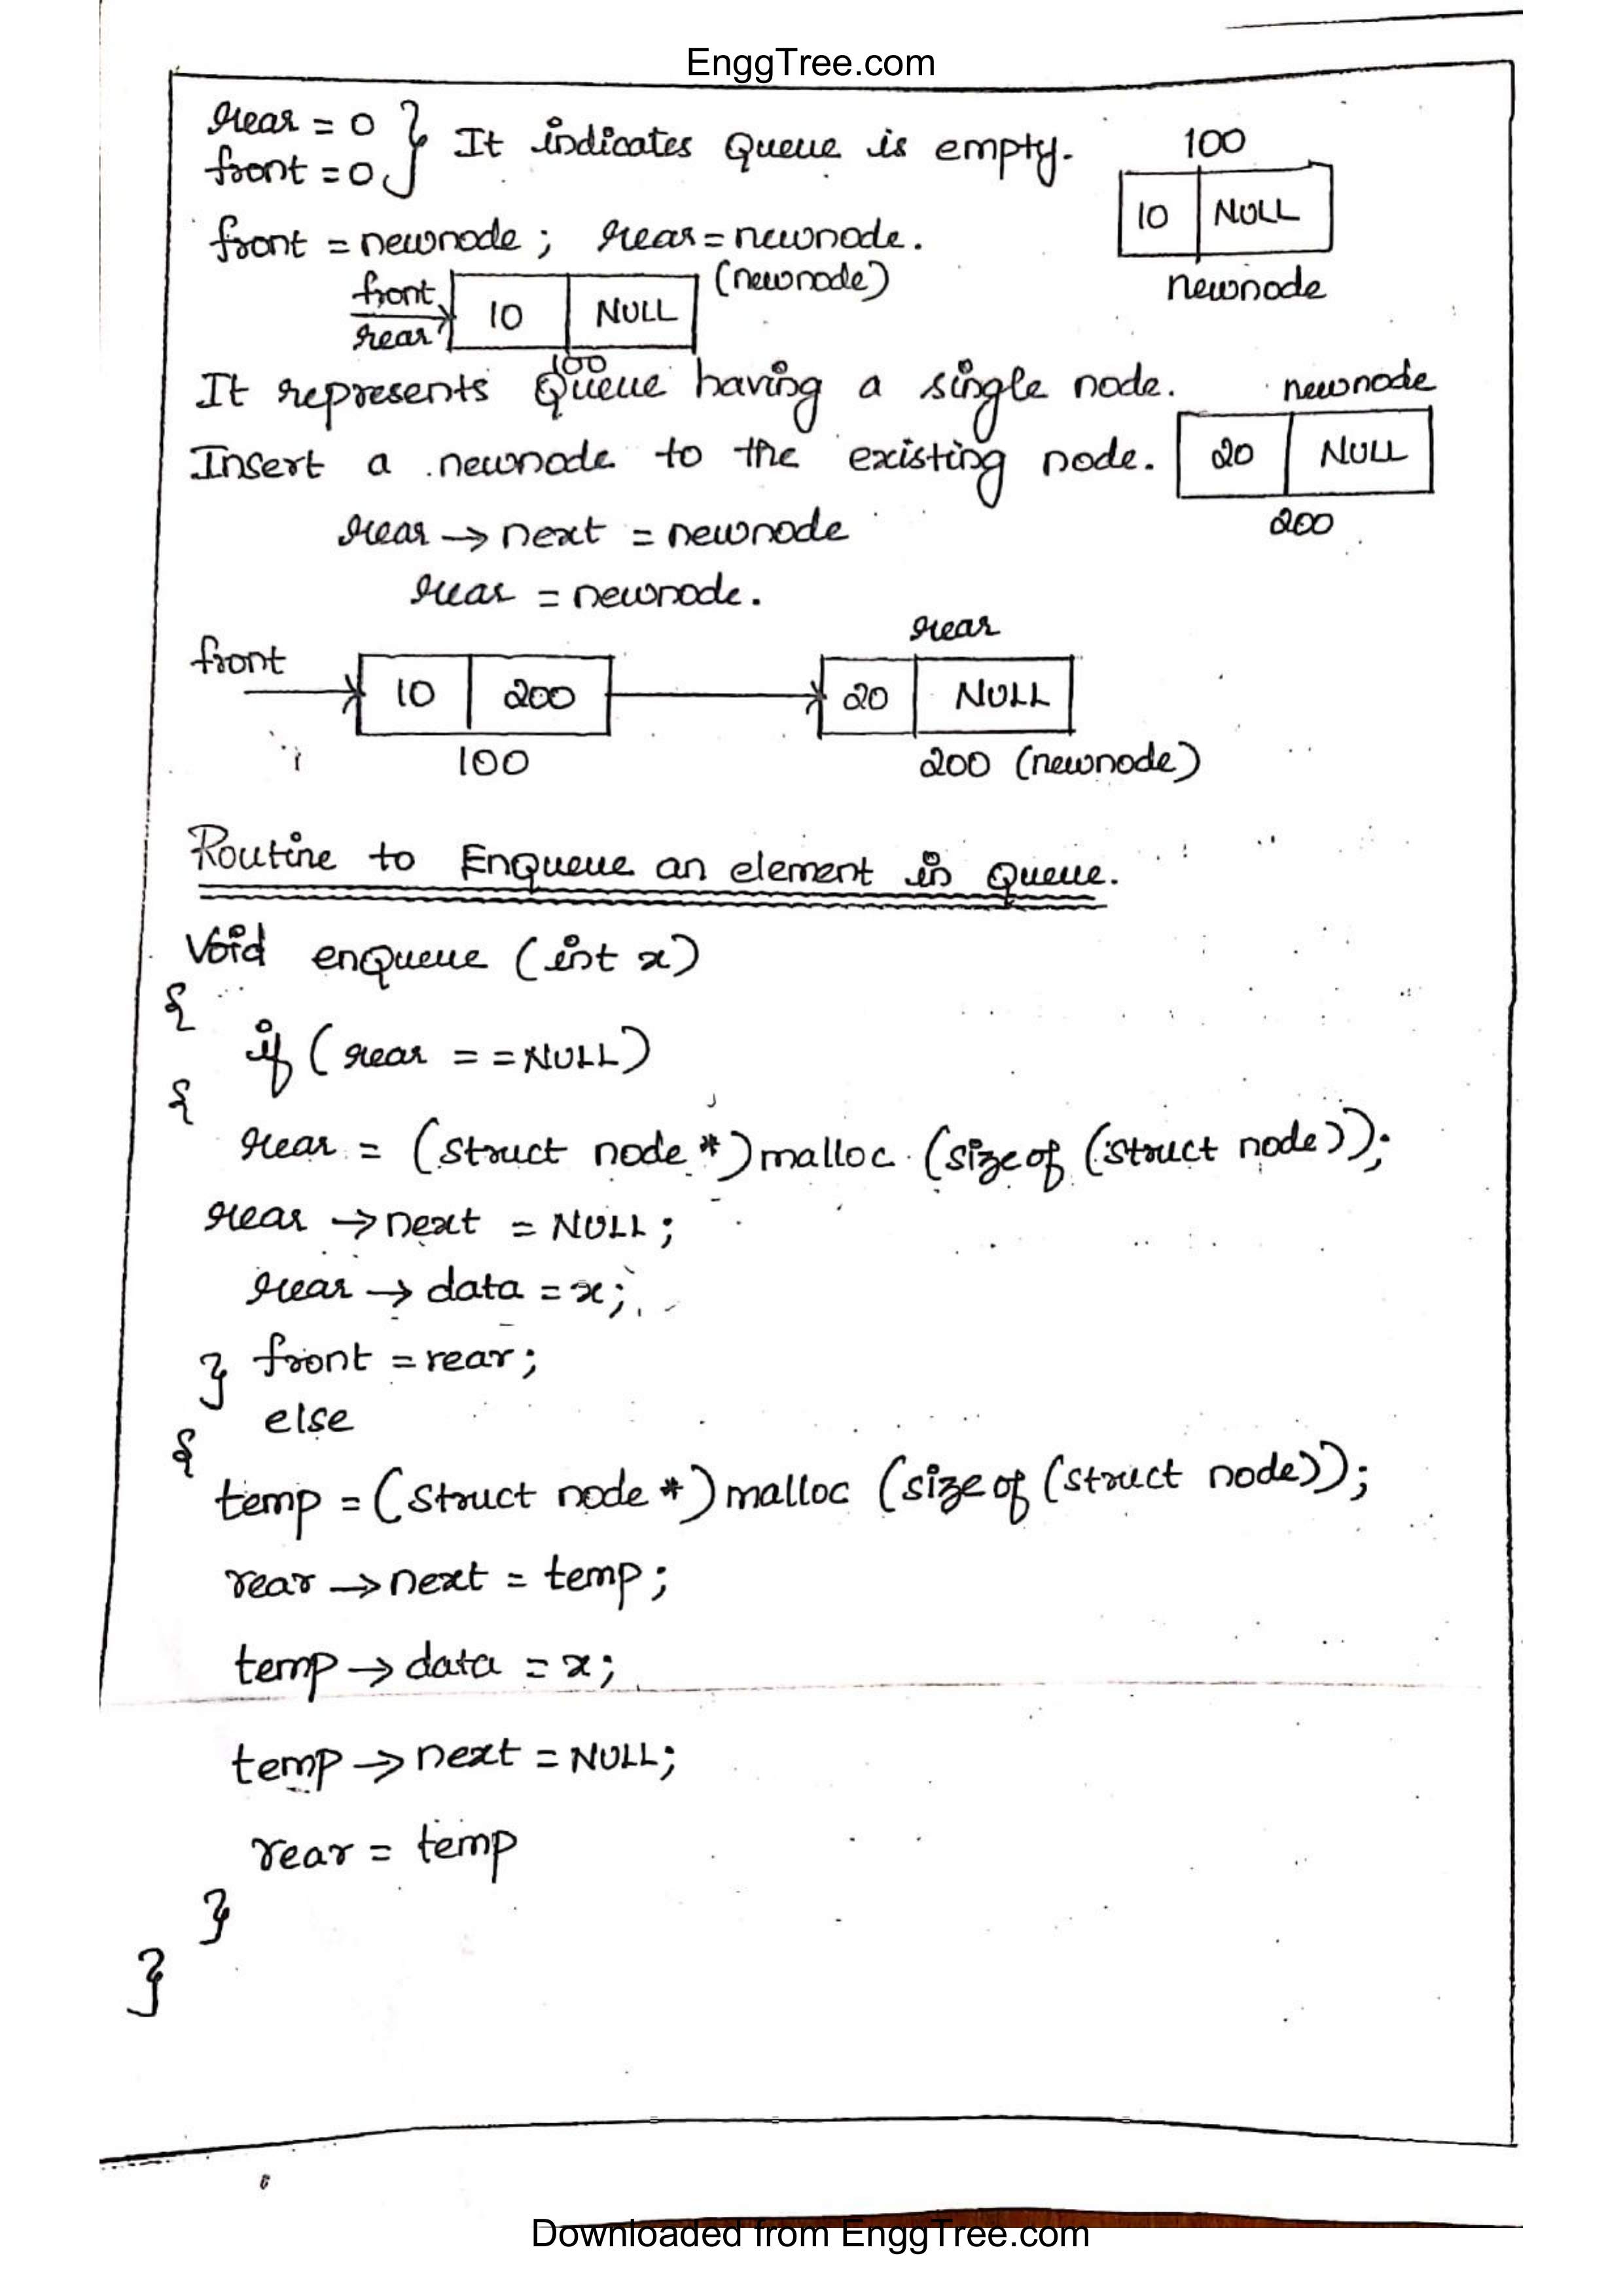 EnggTree.com
rear = 0 } It indicates Queue is empty.
front = 0
100
10 NULL
newnode
front = newnode ; rear = newnode.
front rear 10 NULL (newnode)
100
It represents Queue having a single node.
newnode
Insert a newnode to the existing node. 20 NULL
200
rear → next = newnode
rear = newnode.
rear
front 10 200 20 NULL
100 200 (newnode)
Routine to Enqueue an element in Queue.
Void enqueue (int x)
{
if (rear = = NULL)
{
rear = (struct node *) malloc (sizeof (struct node));
rear → next = NULL;
rear → data = x;
} front = rear;
else
{
temp = (struct node *) malloc (sizeof (struct node));
rear → next = temp;
temp → data = x;
temp → next = NULL;
rear = temp
}
}
Downloaded from EnggTree.com